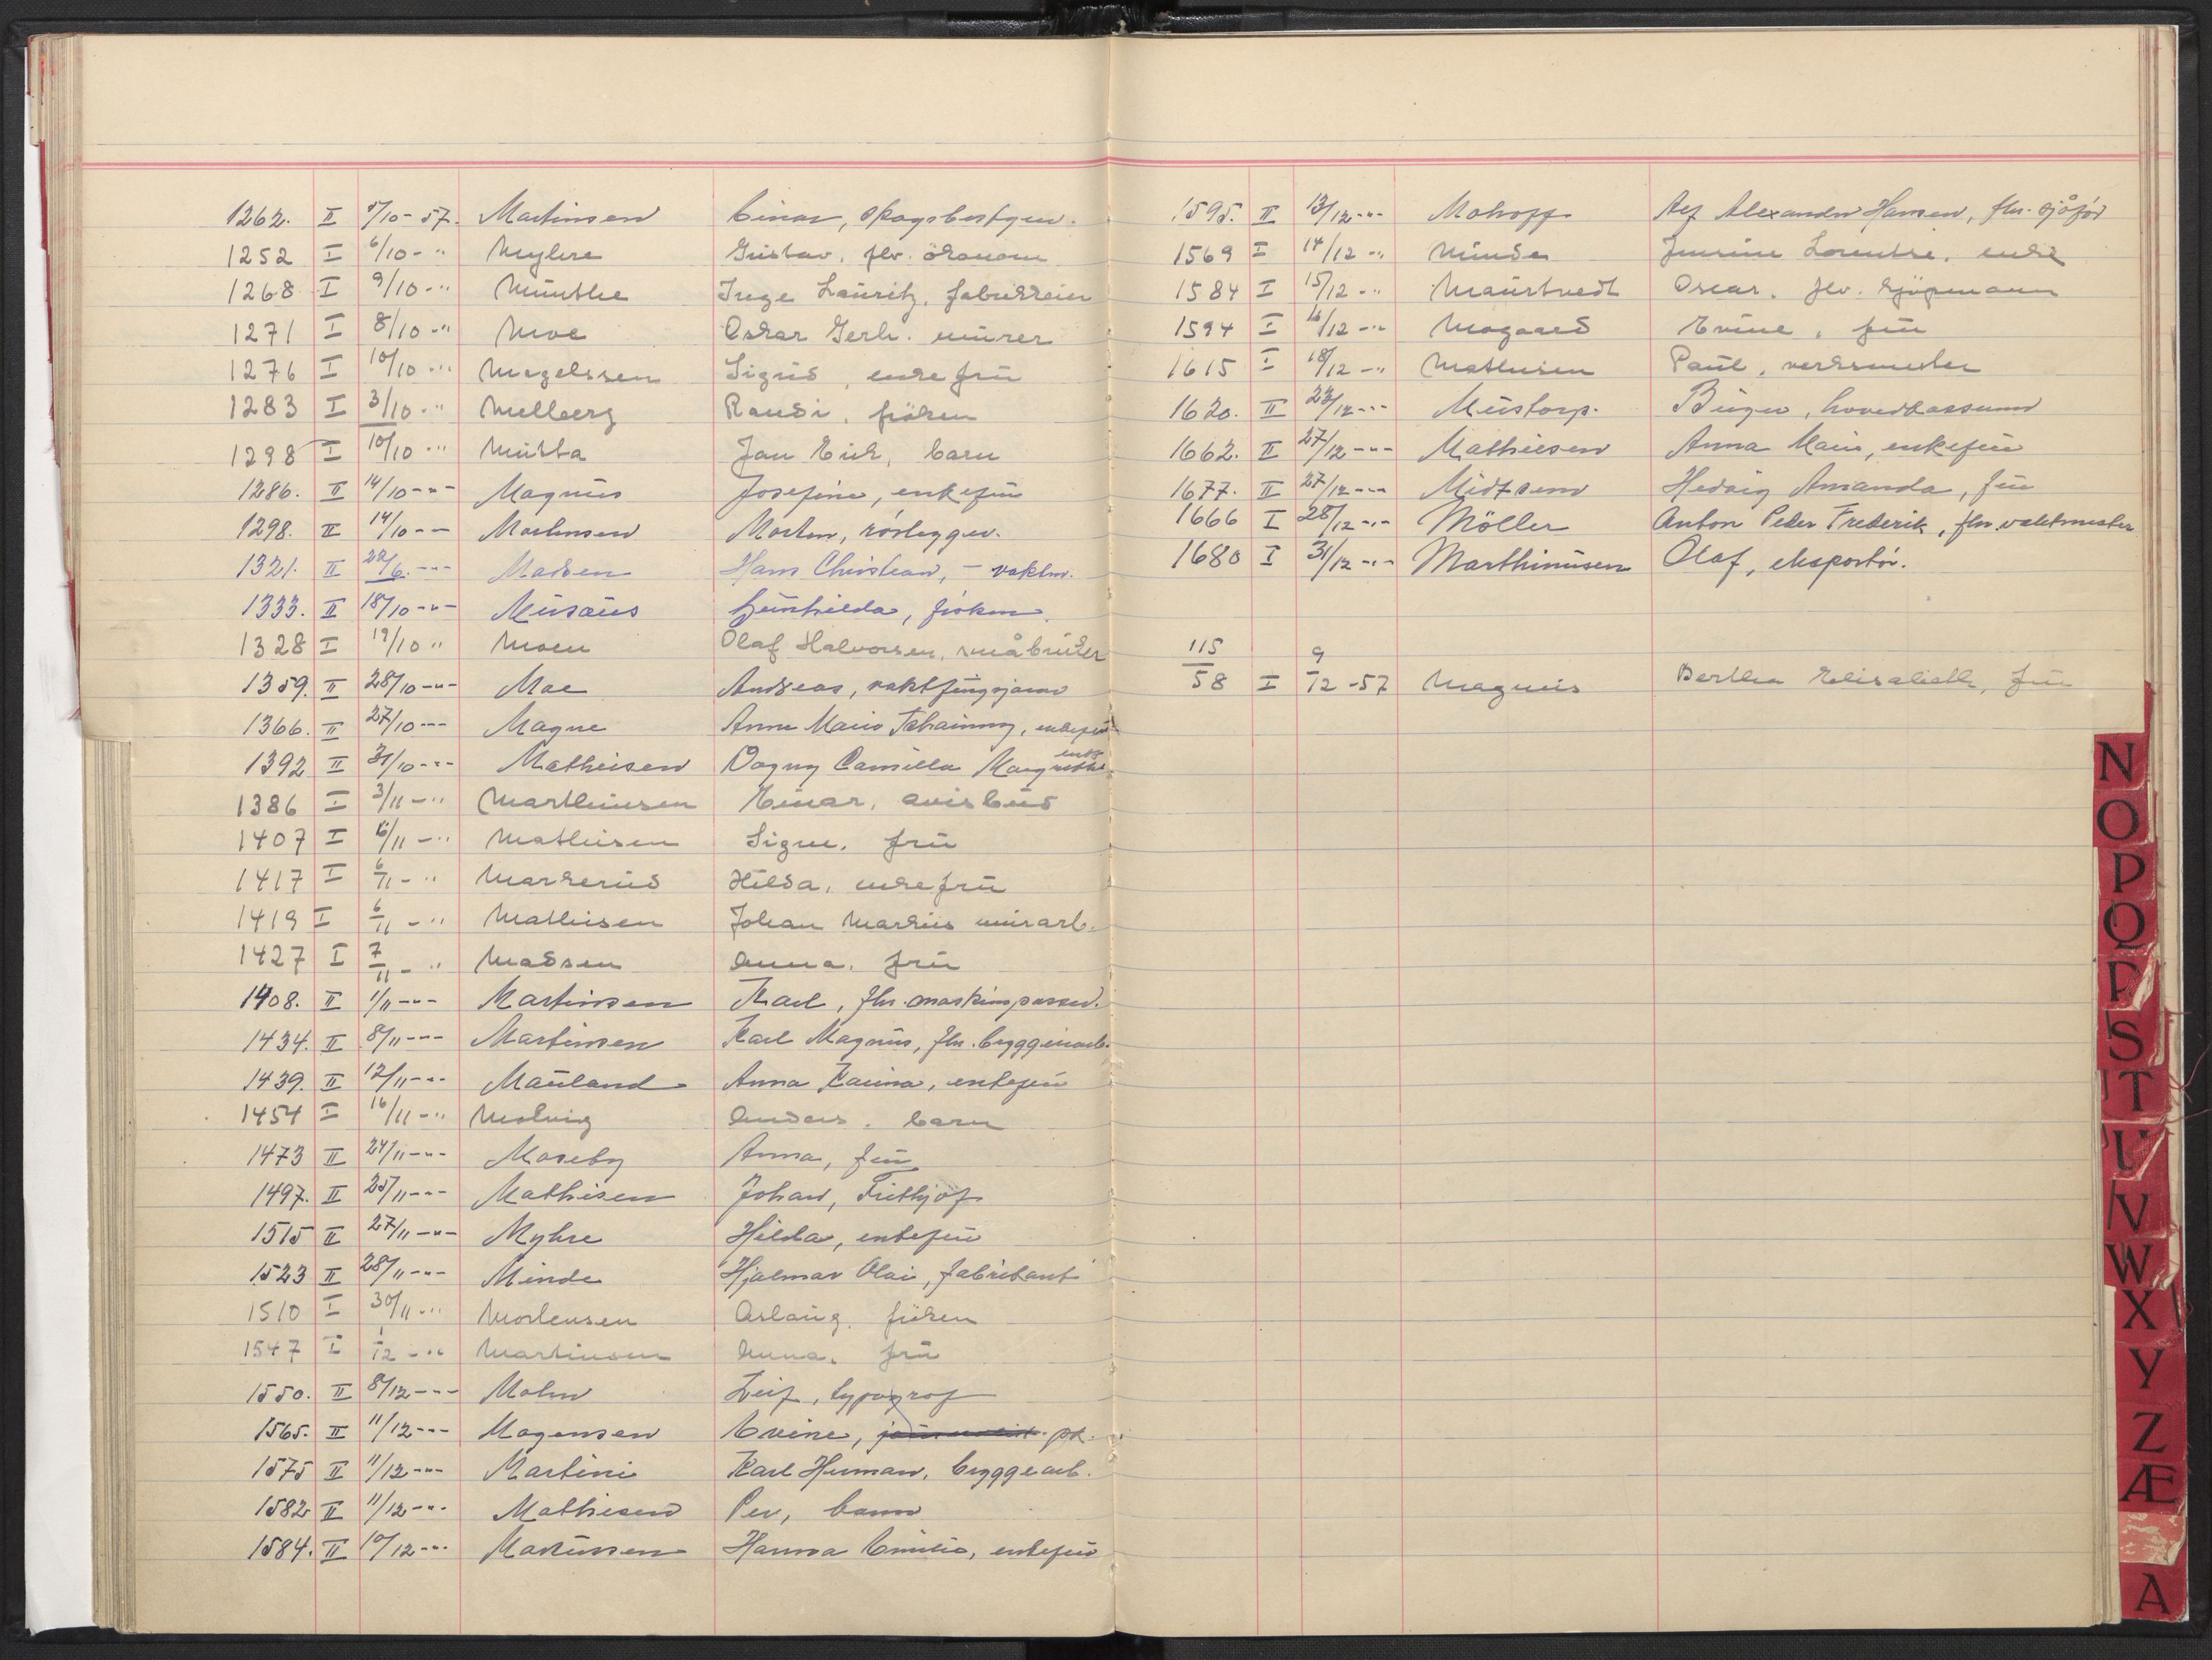 1262. II 5/10-57. Martinsen Einar, skogsbestyrer.
1252 I 6/10-" Myhre Gustav, flv. økonom
1268 I 9/10-" Münthe Inge Lauritz, fabrikkeier
1271 I 8/10-" Moe Oskar Gerh. murer
1276 I 10/10-" Magelssen Sigrid, enkefru
1283 I 3/10-" Melberg Randi, frøken
1298 I 10/10-" Jan Erik, barn
1286. II 14/10-"- Magnus Josefine, enkefru
1298. II 14/10-"- Martinsen Morten, rørlegger.
1321. II 22/6.-"- Madsen Hans Christian, - vaktm.
1333. II 18/10-"- Musæus Gunhilda, frøken.
1328 I 19/10 " Moen Olaf Halvorsen, småbruker
1359. II 28/10-"- Moe Andreas, vaktfungsjonær
1366. II 27/10-"- Magne Anna Marie, enkefru
1392 II 31/10-"- Mathisen Dagny Camilla Margrethe enke
1386 I 3/11-" Marthinsen Einar, avisbud
1407 I 6/11-" Mathisen Signe, fru
1417 I 6/11-" Markerud Hilda, enkefru
1419 I 6/11-" Mathisen Johan Markus murarb.
1427 I 7/11-" Madsen Anna, fru
1408. II 1/11-"- Martinsen Karl, fhv. maskinpasser.
1434. II 8/11-"- Martinsen Karl Magnus, fhv. bryggeriarb.
1439. II 12/11-"- Mauland Anna Karina, enkefru
1454 I 16/11-" Molvig Anders, barn
1473 II 24/11-"- Moseby Anna, fru
1497. II 25/11-"- Mathisen Johan, Fritbjof
1515 II 27/11-"- Myhre Hilda, enkefru
1523 II 28/11-"- Minde Hjalmar Olai, fabrikant
1510 I 30/11-" Mortensen Aslaug, frøken
1547 I 1/12-" Martinsen Anna, fru
1550. II 8/12-"- Malm Leif, typograf
1565. II 11/12-"- Mogensen Evine,
1575 II 11/12-"- Martini Karl Herman, bryggearb.
1582 II 11/12-"- Mathisen Per, barn
1584. II 10/12-"- Markussen Hanna Emilie, enkefru
1595. II 13/12-"- Mohroff Alf Alexander Hansen, fhv. sjåfør
1569 I 14/12-" Munda Jensine Lorentse, enke
1584 I 15/12-" Maurtvedt Oscar, flv. kjøpmann
1594 I 16/12-" Mogaard Evine, fru
1615 I 18/12-" Mathisen Paul, verksmester
1620. II 23/12-"- Mustorp. Birger, hovedkasserer
1662. II 27/12-"- Mathiesen Anna Marie, enkefru
1677. II 27/12-"- Midtsem Hedvig Amanda, fru
1666 I 28/12-"- Möller Anton Peder Frederik, fhv. vaktmester
1680 I 31/12-"- Marthinusen Olaf, eksportør.
115/58 I 9/12-57 Magnus Bertha Elisabeth, fru
N
O
P
Q
R
S
T
U
V
W
X
Y
Z
Æ
A